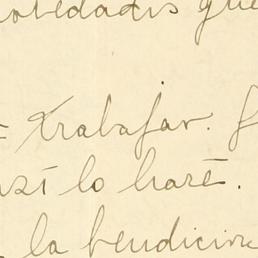 novedades que
= trabajar. y
así lo haré.
la bendición